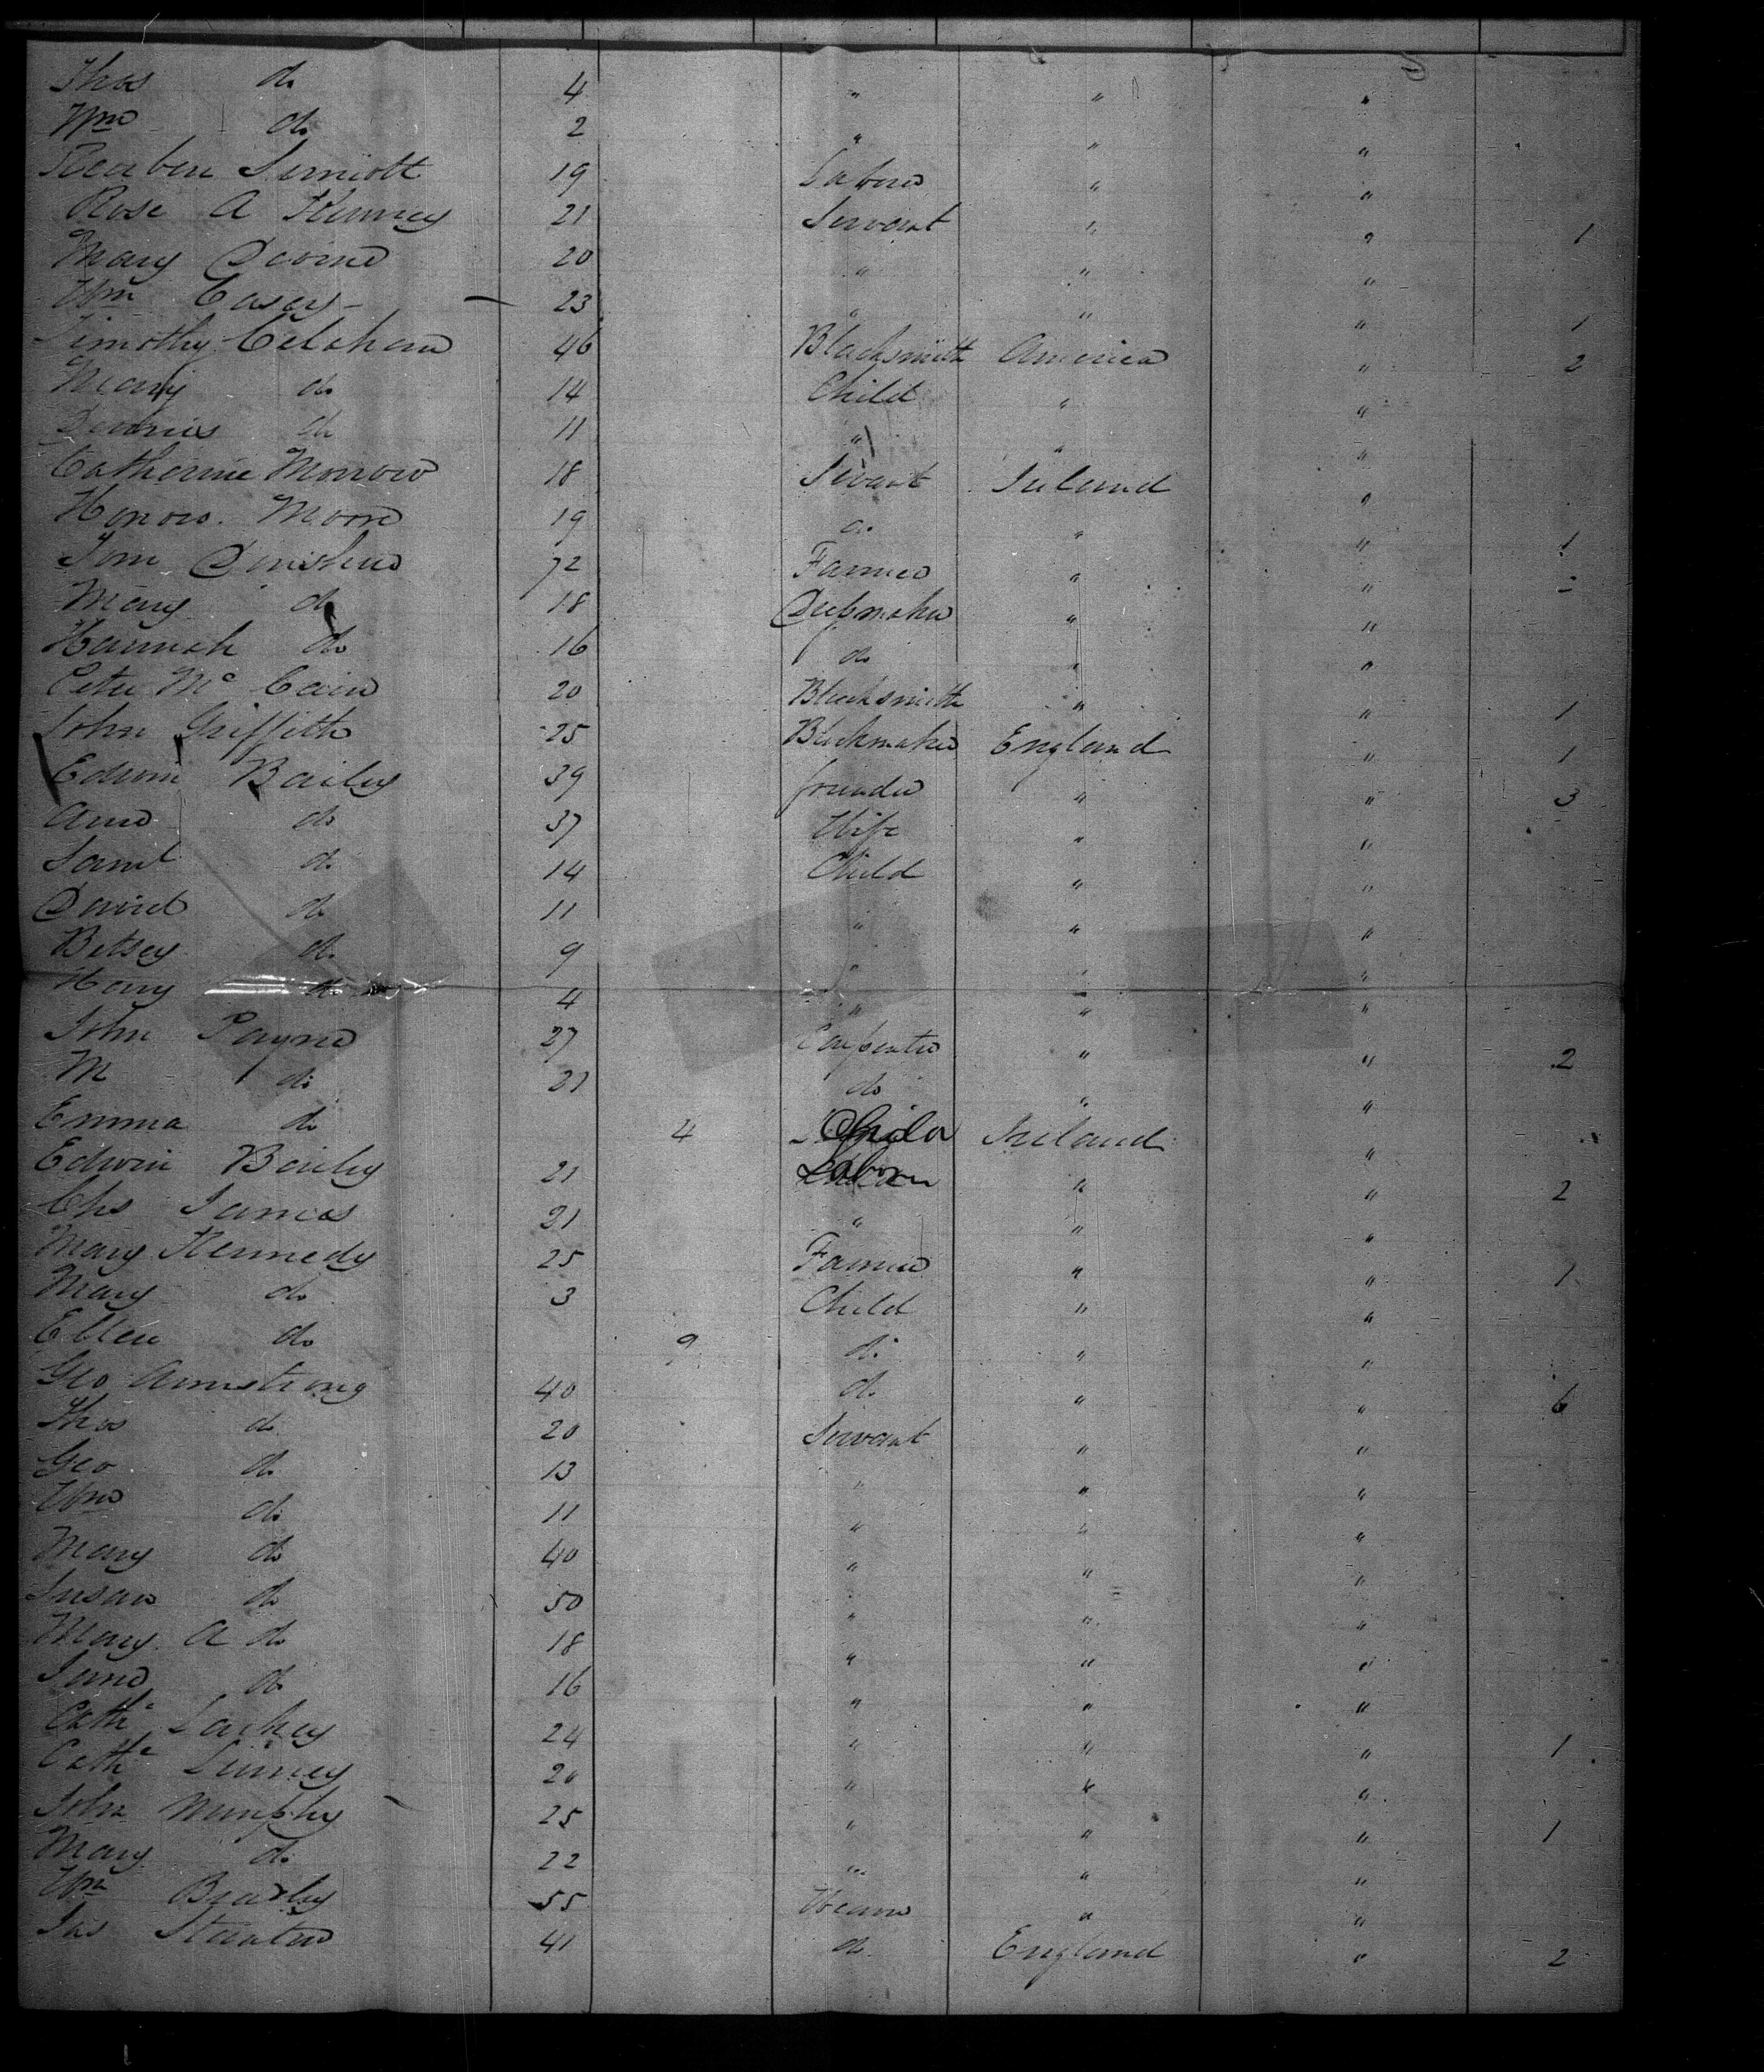 Thos do 4 " " "
Wm do 2 " " "
Reuben 19 Laborer " "
Rose A Kinney 21 Servant " " 1
Mary Devine 20 " " "
Wm Casey 23 " " " 1
Timothy Celahan 46 Blacksmith America " 2
Mary do 14 Child " "
Dennis do 11 " " "
Catherine Morrow 18 Sevant Ireland "
Honora Moore 19 do " " 1
72 Farmer " "
Mary do 18 " "
Hannah do 16 do " "
Peter Mc Cain 20 Blacksmith " " 1
John Griffith 25 England " 1
Edwin Bailey 39 " " 3
Ann do 37 Wife " "
Saml do 14 Child " "
David do 11 " " "
Betsey do 9 " " "
Hary do 4 " " "
John Payne 27 Carpenter " " 2
M do 21 do " "
Emma do 4 Child Ireland "
Edwin Bailey 21 Laborer " " 2
Chs James 21 " " "
Mary Kennedy 25 Farmer " " 1
Mary do 3 Child " "
Ellen do 9 do " "
Geo Armstrong 40 do " " 6
Thos do 20 Servant " "
Geo do 13 " " "
Wm do 11 " " "
Mary do 40 " " "
Susan do 50 " " "
Mary A do 18 " " "
Jane do 16 " " "
Cathe Lackey 24 " " " 1
Cathe 20 " " "
John Murphy 25 " " " 1
Mary do 22 " " "
Wm 55 " "
Jas 41 do England " 2